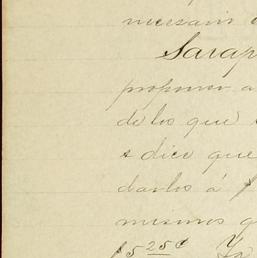 necesario
Sarap
proponer a
de los que
s dice que
darlos á $
mesmos q
$5 25¢ Ya